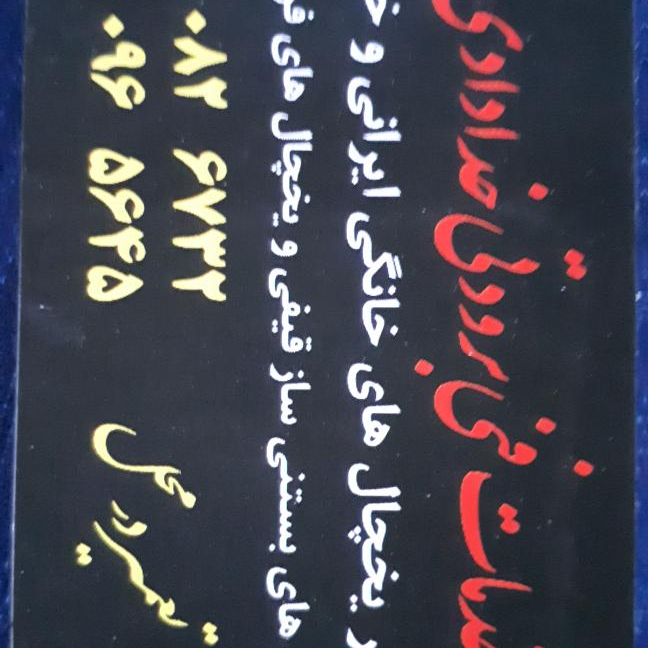 خدمات فنی برودتی خدادادی
یخچال های خانگی ایرانی و
های بستنی ساز قیفی و یخچال های
تعمیر در محل
۰۸۲ ۶۷۳۲
۰۹۶ ۵۶۴۵